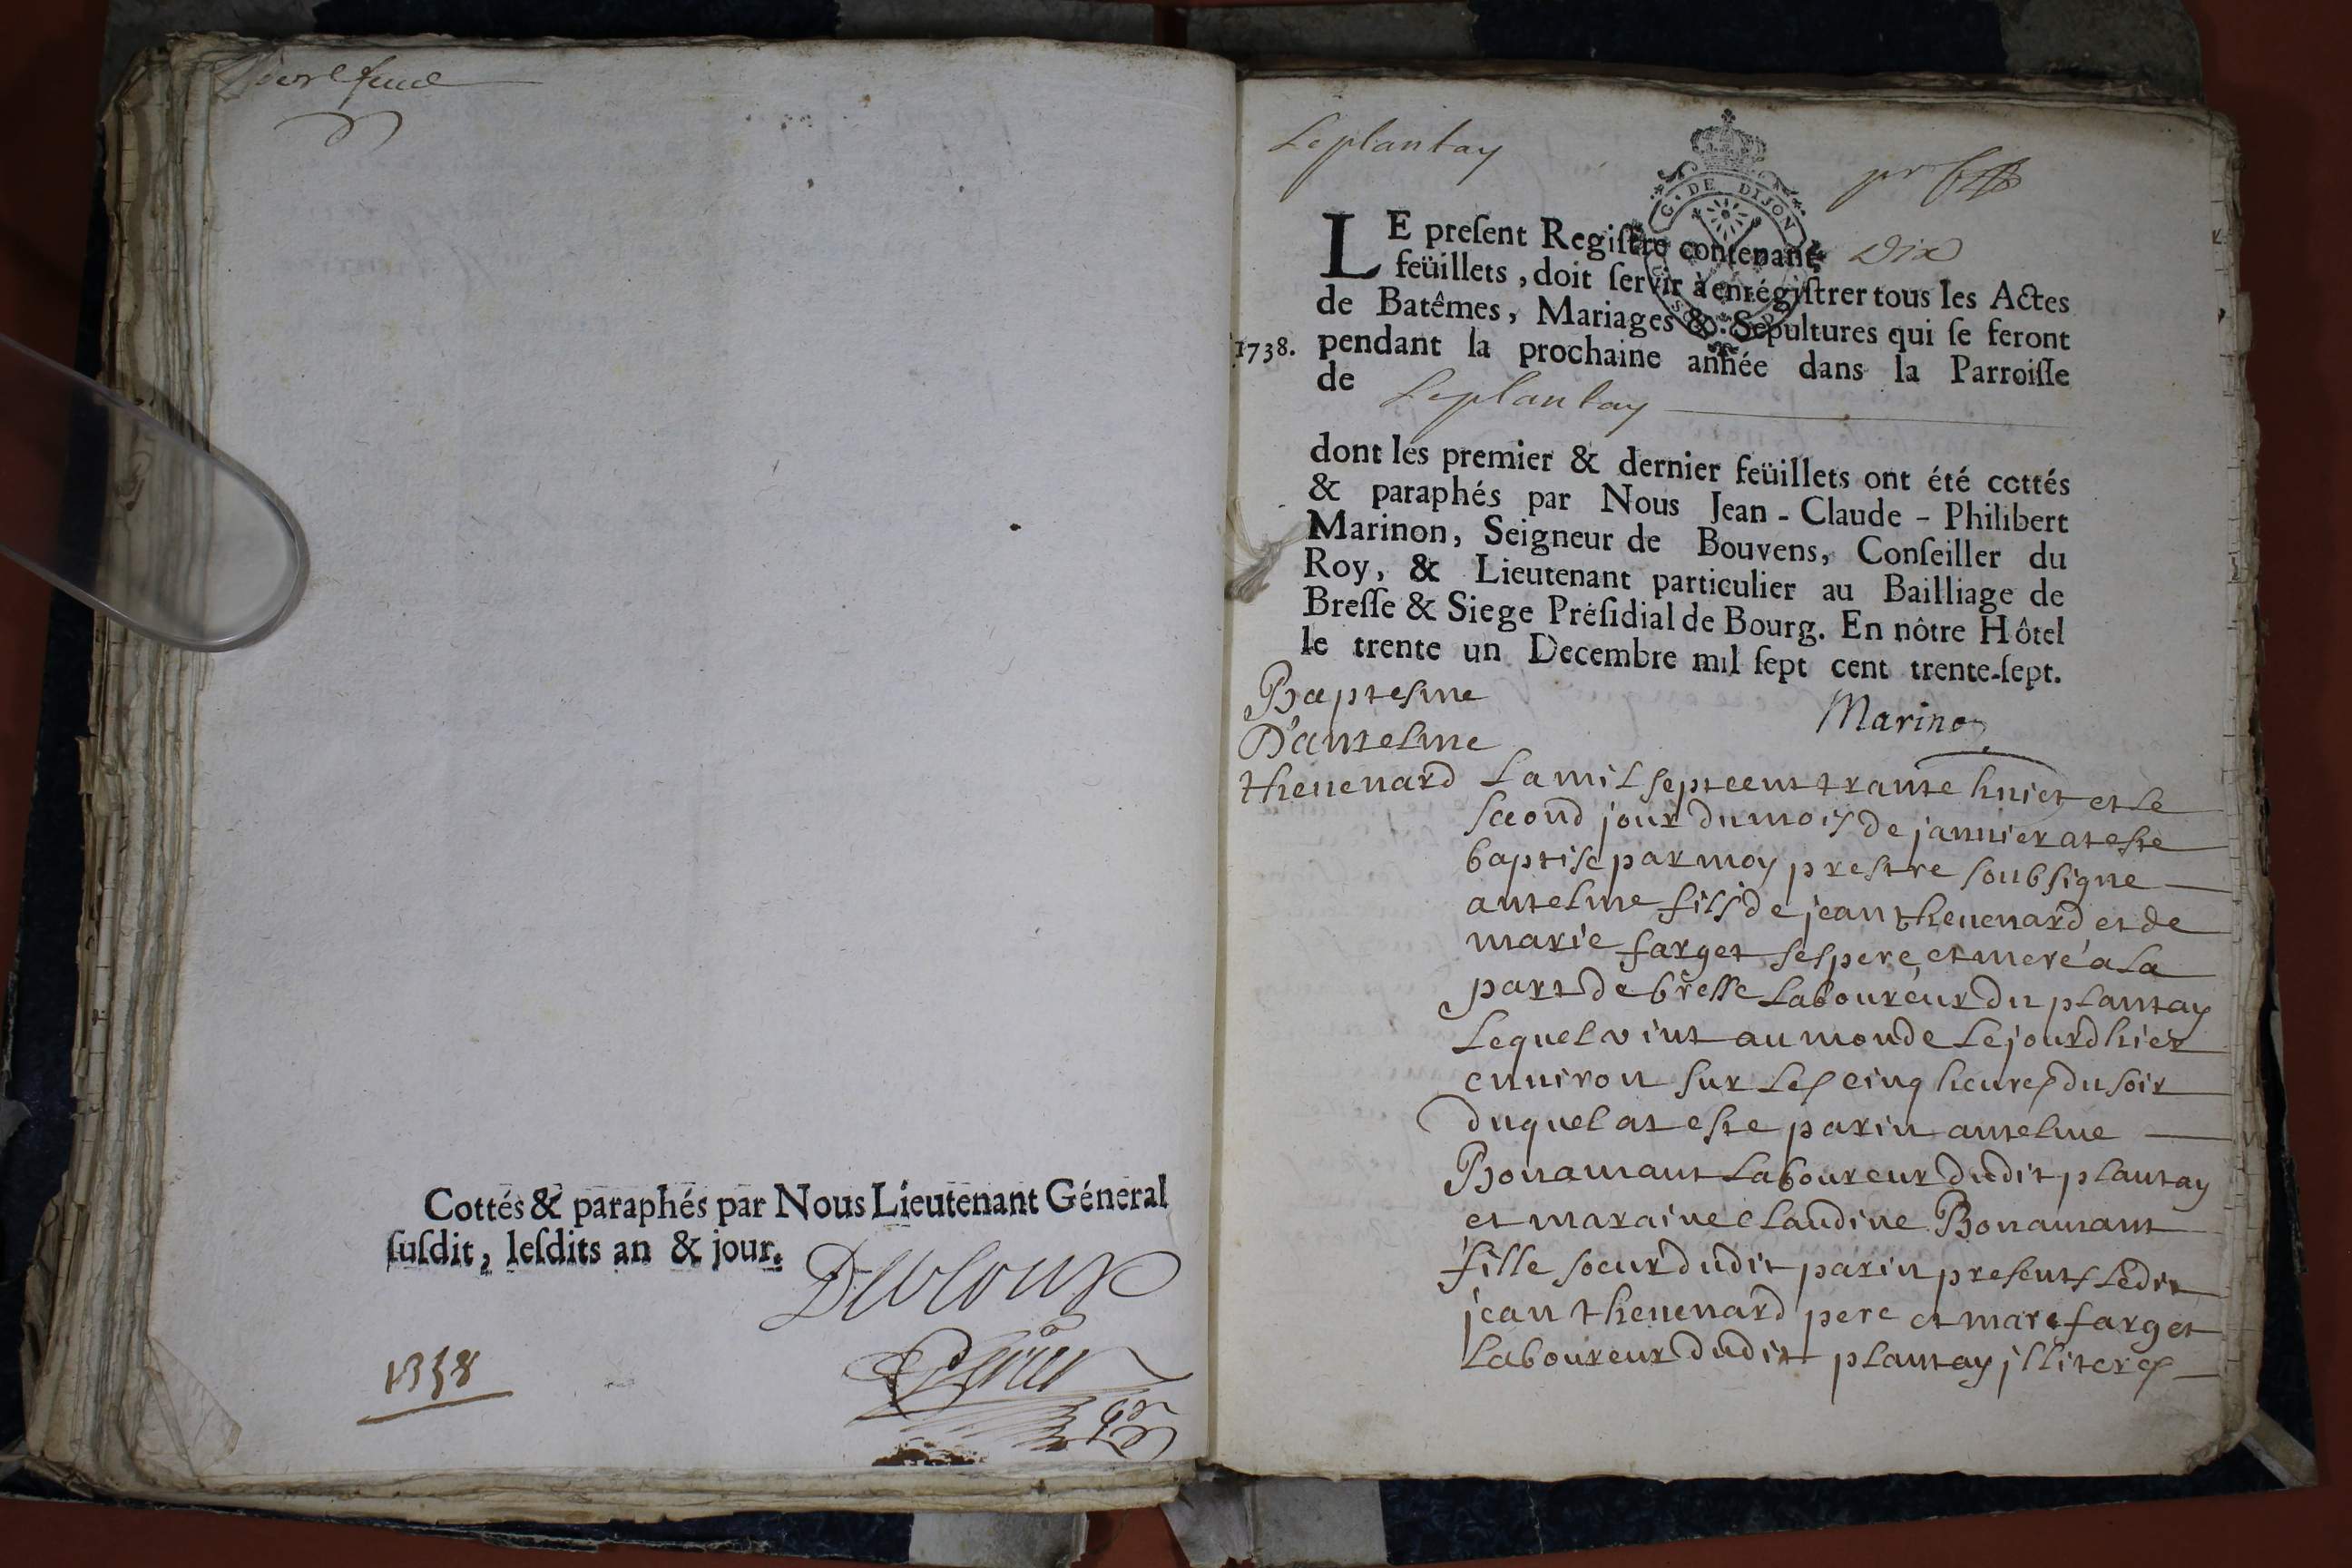 Cottés & paraphés par Nous Lieutenant Géneral
ſuſdit, leſdits an & jour.
1738
Le plantay
G. DE DIJON
LE preſent Regiſtre contenant Dix
feüillets, doit ſervir à enrégiſtrer tous les Actes
de Batêmes, Mariages & Sepultures qui ſe feront
1738. pendant la prochaine année dans la Parroiſſe
de Le plantay
dont les premier & dernier feüillets ont été cottés
& paraphés par Nous Jean - Claude - Philibert
Marinon, Seigneur de Bouvens, Conſeiller du
Roy, & Lieutenant particulier au Bailliage de
Breſſe & Siege Préſidial de Bourg. En nôtre Hôtel
le trente un Decembre mil ſept cent trente-ſept.
Marinon
Baptesme
D'antelme
thevenard
La mil sept cent trante huict et le
second jour du mois de janvier at este
baptise par moy prestre soubsigne
antelme fils de jean thevenard et de
marie farget ses pere et mere a la
part de bresse Laboureur du plantay
Lequel vint au monde le jourd hier
environ sur les cinq heures du soir
duquel at este parin antelme
Bonamant Laboureur dudit plantay
et maraine Claudine Bonamant
fille soeur dudit parin presents Ledit
jean thevenard pere et mare farget
Laboureur dudit plantay jlliteres